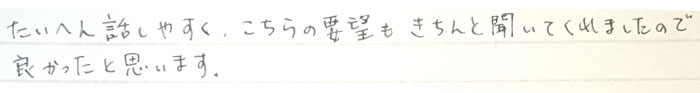 たいへん話しやすく、こちらの要望もきちんと聞いてくれましたので
良かったと思います。